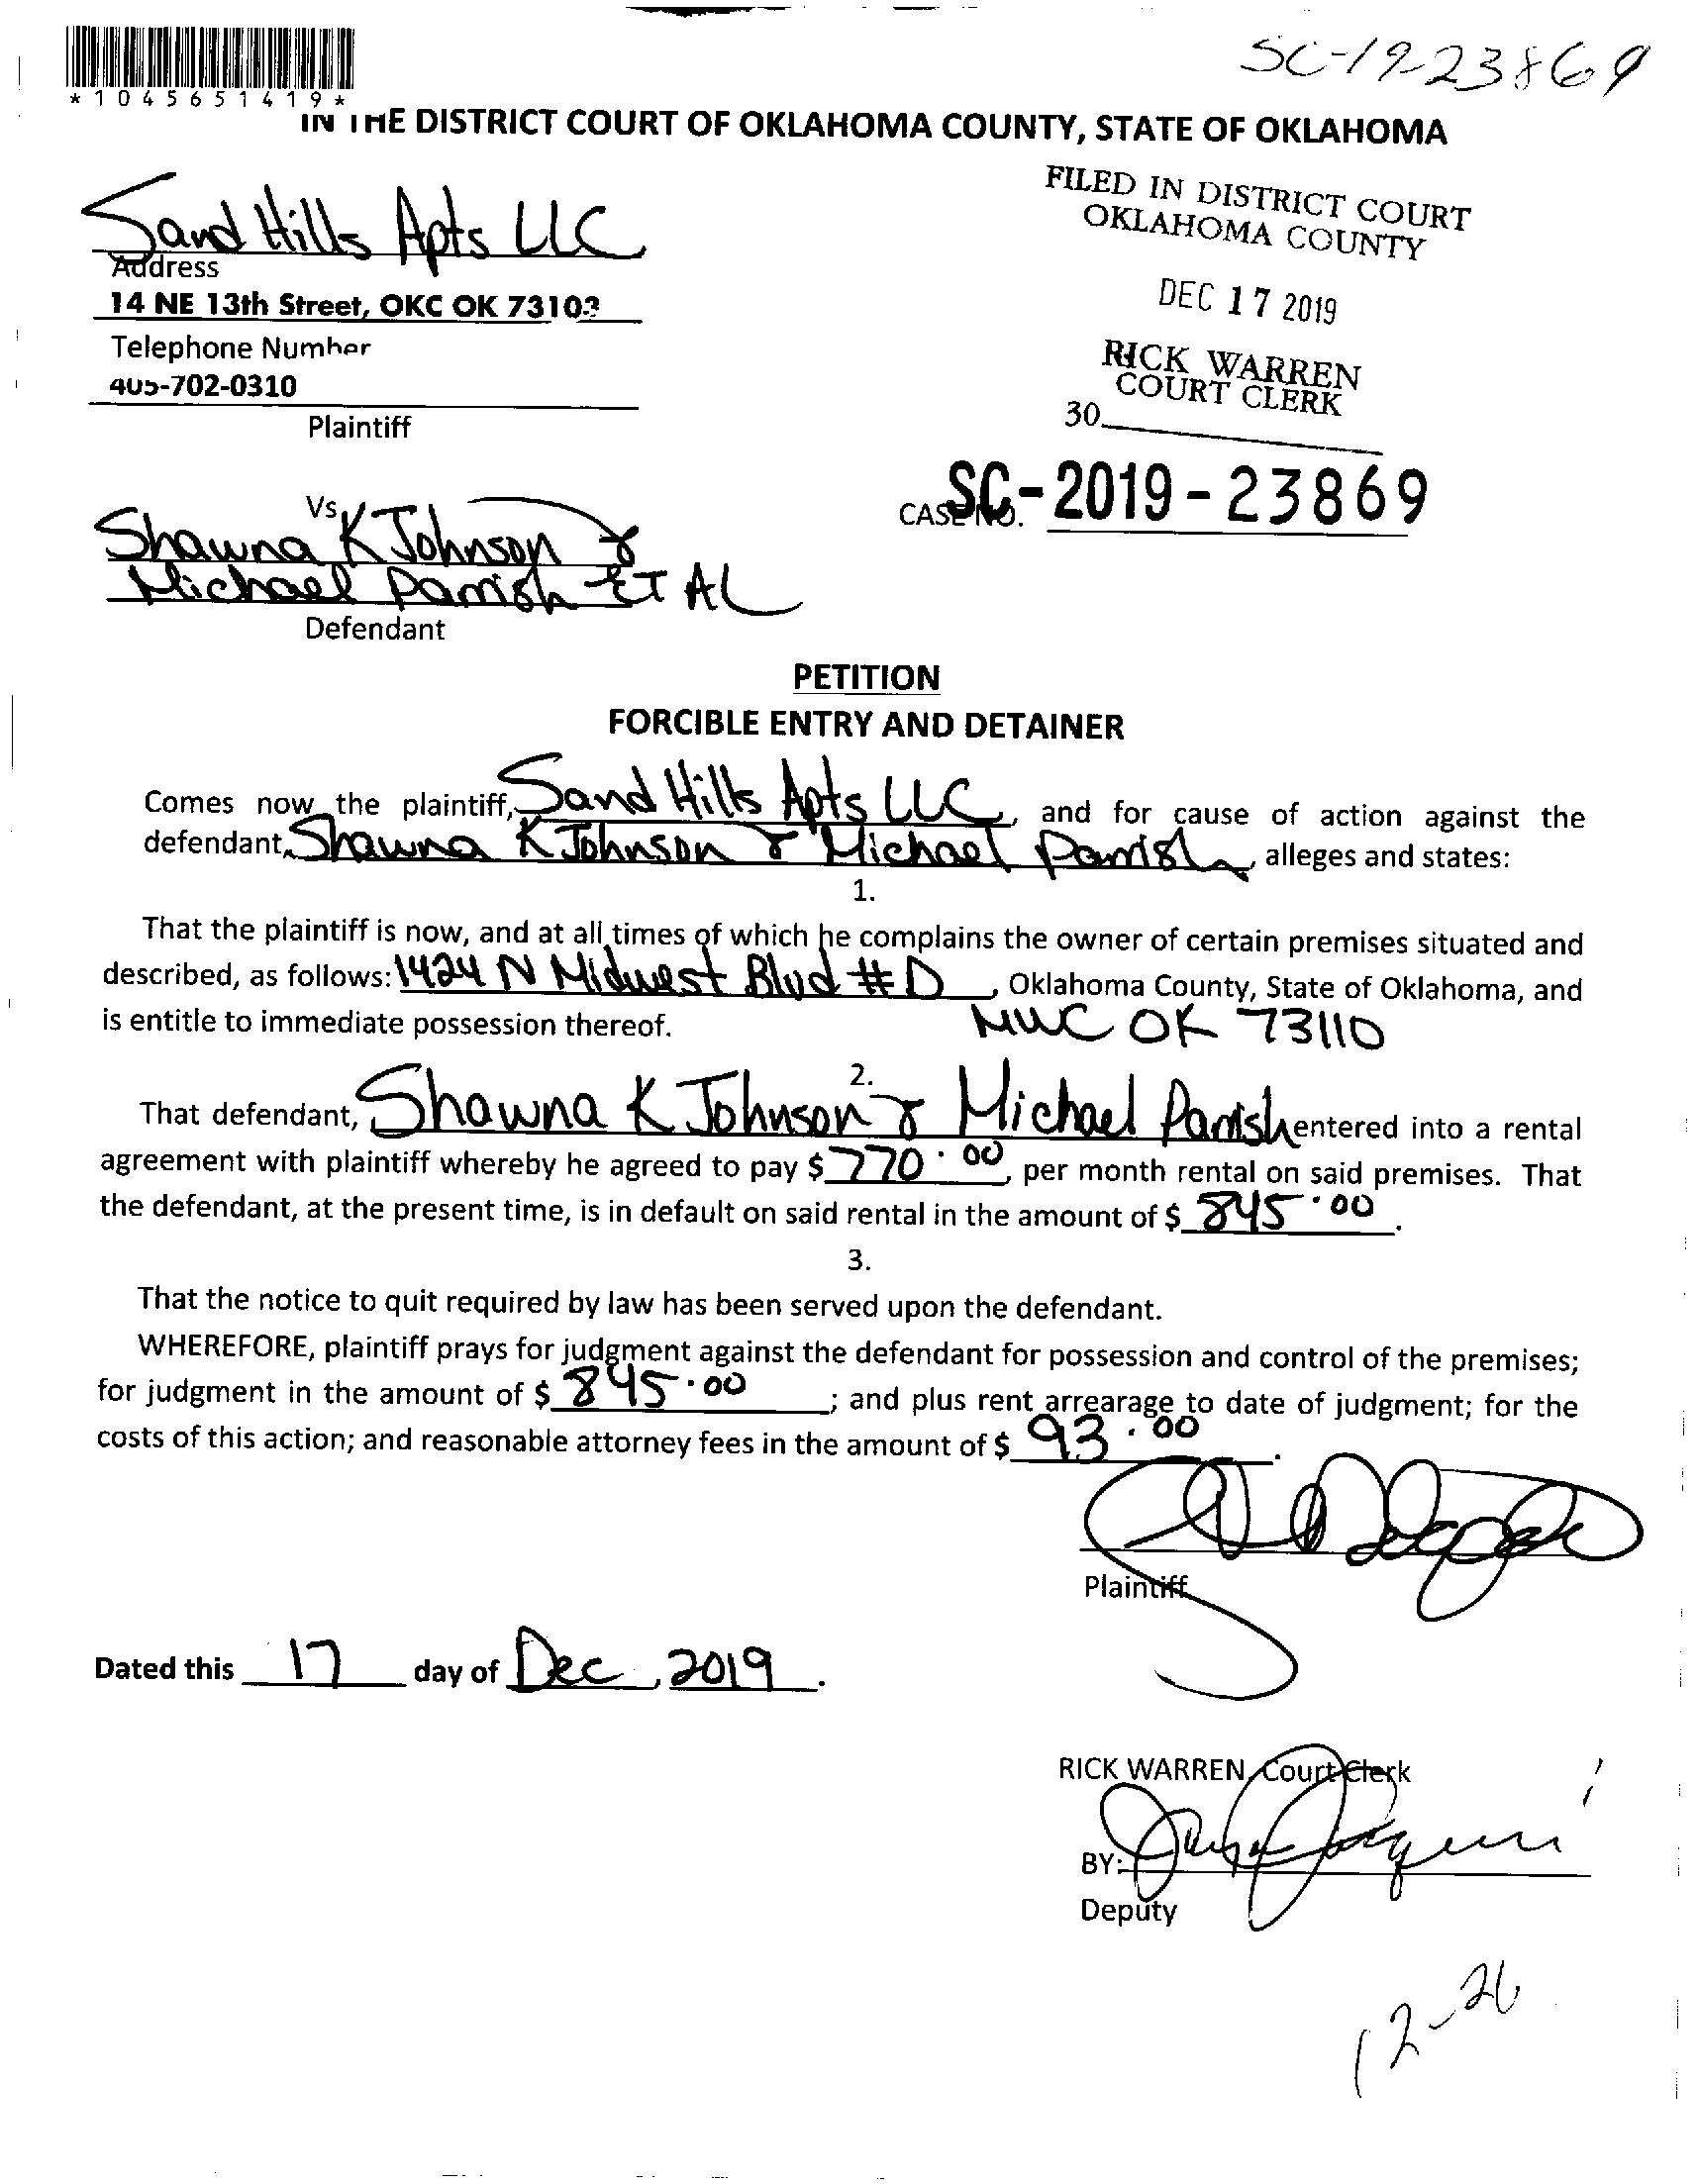 SC-19-23869
*1045651419*
IN THE DISTRICT COURT OF OKLAHOMA COUNTY, STATE OF OKLAHOMA
FILED IN DISTRICT COURT
OKLAHOMA COUNTY
DEC 17 2019
RICK WARREN
COURT CLERK
30
Sand Hills Apts LLC
Address
14 NE 13th Street, OKC OK 73103
Telephone Number
405-702-0310
Plaintiff
CASE NO. SC-2019-23869
Vs
Shawna K Johnson &
Michael Parrish ET AL
Defendant
PETITION
FORCIBLE ENTRY AND DETAINER
Comes now the plaintiff, Sand Hills Apts LLC, and for cause of action against the
defendant, Shawna K Johnson & Michael Parrish, alleges and states:
1.
That the plaintiff is now, and at all times of which he complains the owner of certain premises situated and
described, as follows: 1424 N Midwest Blvd # D, Oklahoma County, State of Oklahoma, and
is entitle to immediate possession thereof. MWC OK 73110
2.
That defendant, Shawna K Johnson & Michael Parrish entered into a rental
agreement with plaintiff whereby he agreed to pay $ 770.00, per month rental on said premises. That
the defendant, at the present time, is in default on said rental in the amount of $ 845.00.
3.
That the notice to quit required by law has been served upon the defendant.
WHEREFORE, plaintiff prays for judgment against the defendant for possession and control of the premises;
for judgment in the amount of $ 845.00; and plus rent arrearage to date of judgment; for the
costs of this action; and reasonable attorney fees in the amount of $ 93.00.
Plaintiff
Dated this 17 day of Dec, 2019.
RICK WARREN, Court Clerk
BY:
Deputy
12-26